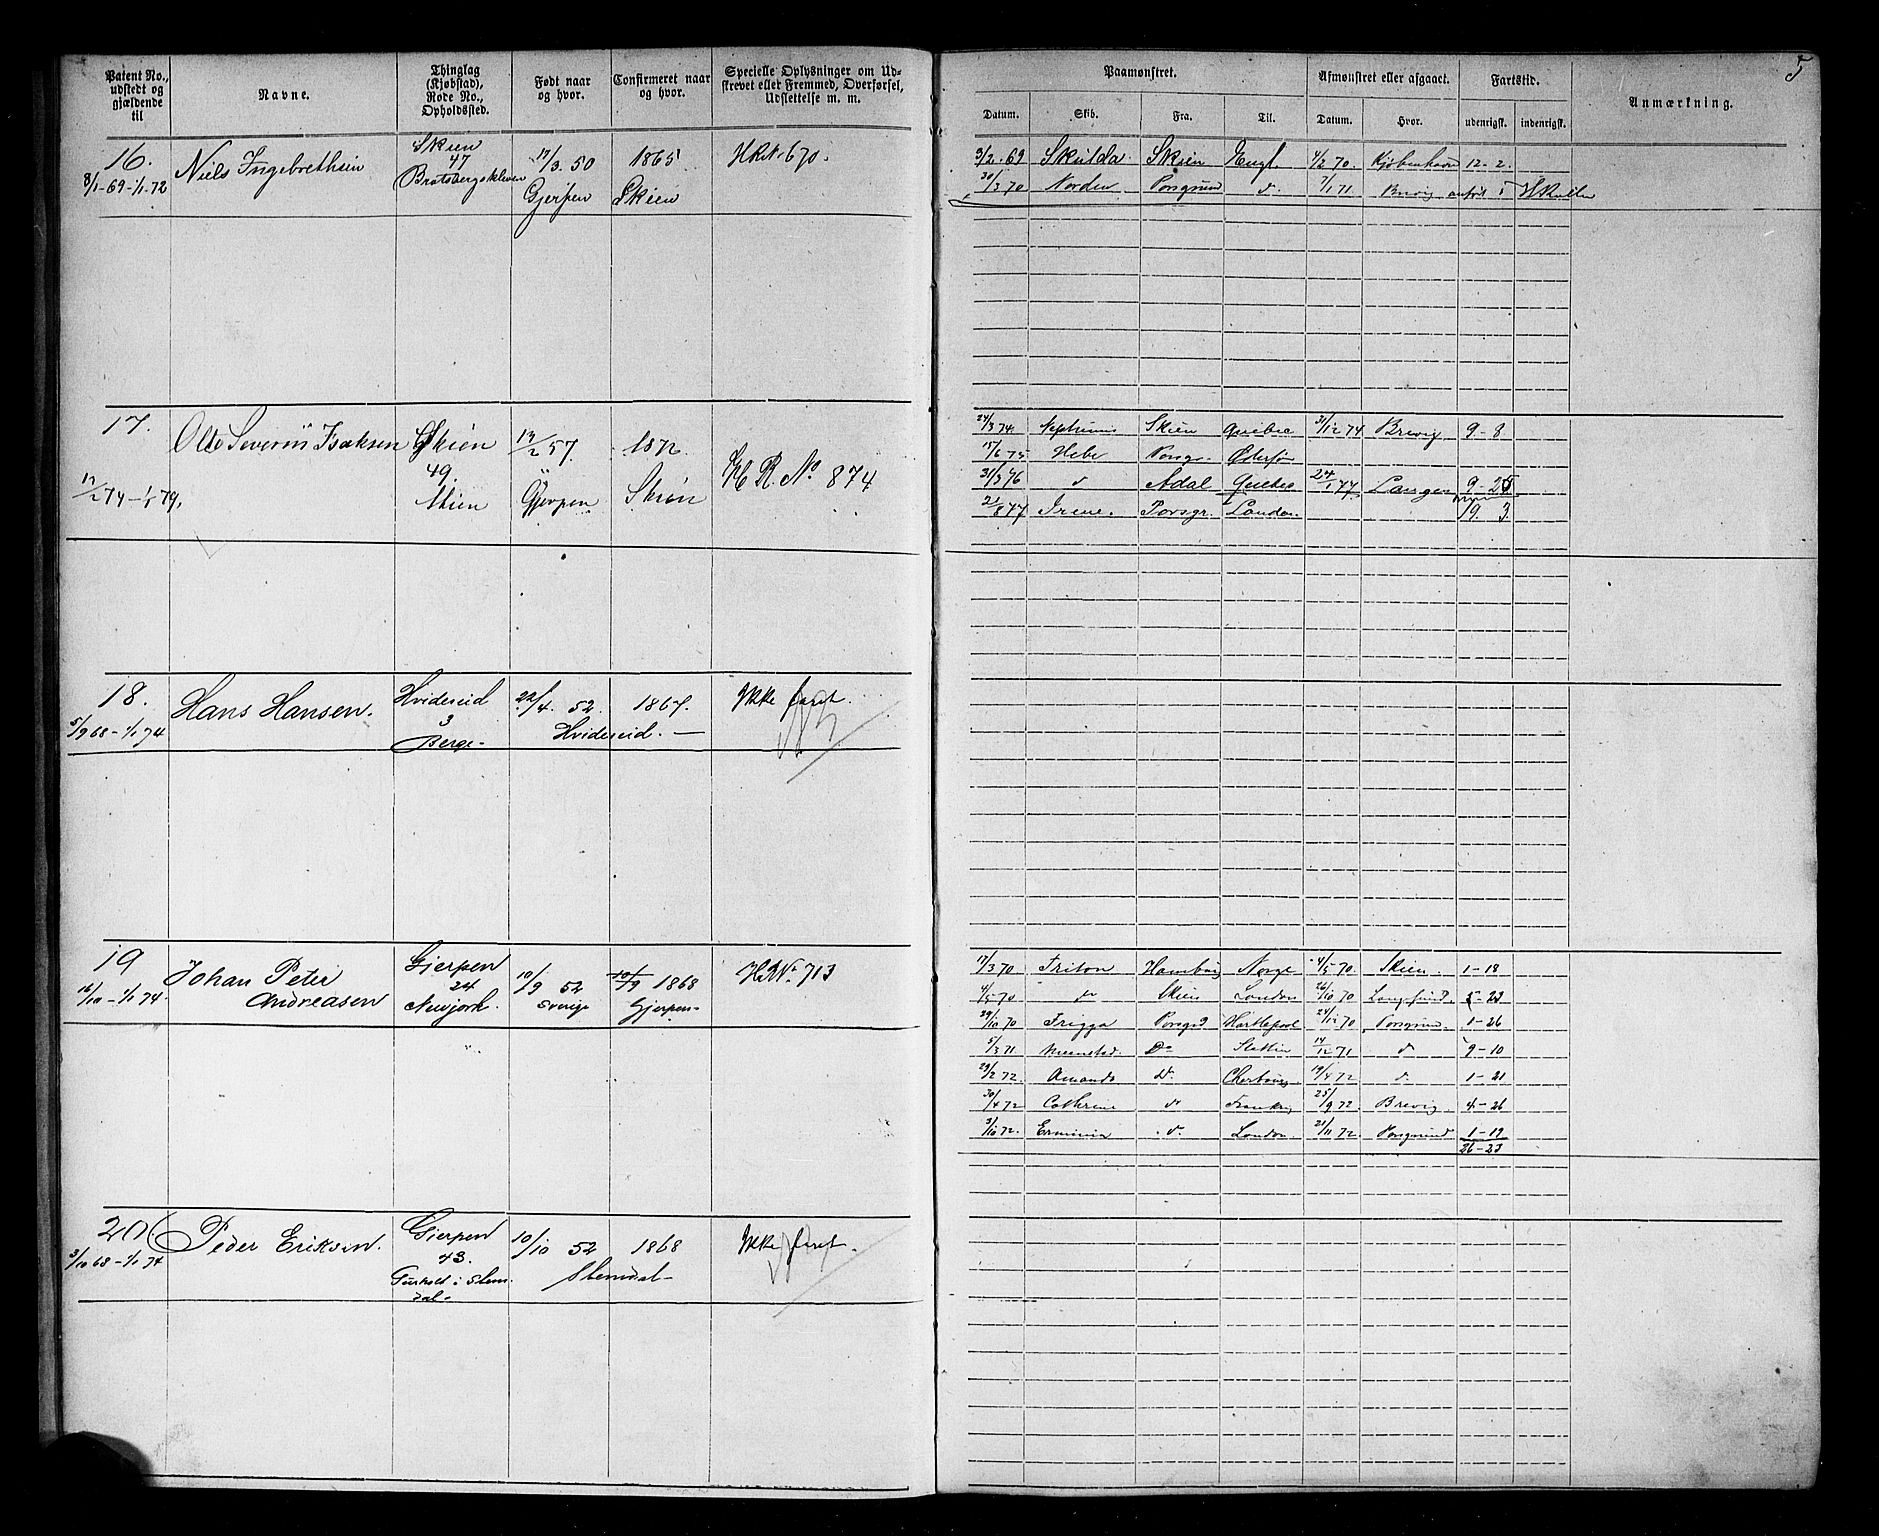 5
Patent No., udstedt og gjældende til
Navne.
Thinglag (Kjøbstad), Rode No., Opholdssted.
Født naar og hvor.
Confirmeret naar og hvor.
Specielle Oplysninger om Udstrevet eller Fremmed, Overførsel, Udslettelse m. m.
Paamønstret.
Afmønstret eller afgaaet.
Fartstid.
Anmærkning.
Datum. Skib. Fra. Til. Datum. Hvor. udenrigsk. indenrigsk.
16.
8/1-69-1/1-72
Niels Ingebrethsen
Skien
47
Bratsbergskleven
17/3. 50
Gjerpen
1865
Skien
HRN. 670.
3/2. 69 Skulda. Skien Engl. 4/2 70. Kjøbenhavn 12-2.
30/3 70 Norden Porsgrund d. 7/1 71 Brevig anført i HRullen
17.
17/2 74-1/1 79.
Olte Severin Isaksen
Skien
49.
Skien
17/2 57.
Gjerpen
1872.
Skien
H R. No 874
24/3 74 Neptunus Skien Quebec 31/12 74 Brevig 9-8
15/6 75 Hebe Porsg. Østersøn
31/3 76 d Adal Quebec 24/1 77 Langes 9-25
2/8 77 Irene. Porsgr. London. 19. 3.
18.
5/9 68-1/1 74
Hans Hansen.
Hvideseid
3
Berge-
22/4. 52.
1867.
Hvideseid. —
Ikke faret.
19
16/10-1/1 74.
Johan Peter
Andreasen
Gjerpen
24
Newjork.
10/9 52
Sverige
10/9 1868
Gjerpen-
HRN. 713
17/3 70 Triton Hamburg Norge 4/5 70. Skien. 1-18
4/5-70 do Skien London 26/10 70 Langesund. 5-23
29/10 70 Frigga Porsgd Hartlepool 24/12 70 Porsgrund. 1-26
5/3 71 Meenstad. Do Stettin 14/12 71 d 9-10
29/2 72. Amanda d. Cherbourg. 19/4 72 d. 1-21
30/4 72 Cathrine do Frankrig 25/9 72 Brevig 4-26
3/10 72. Erminia d. London. 21/11 72 Porsgrund 1-19
26-23
20
3/10 68-1/1 74
Peder Eriksen.
Gjerpen
43.
i Stens
dal-
10/10 52
1868
Stensdal-
Ikke faret.